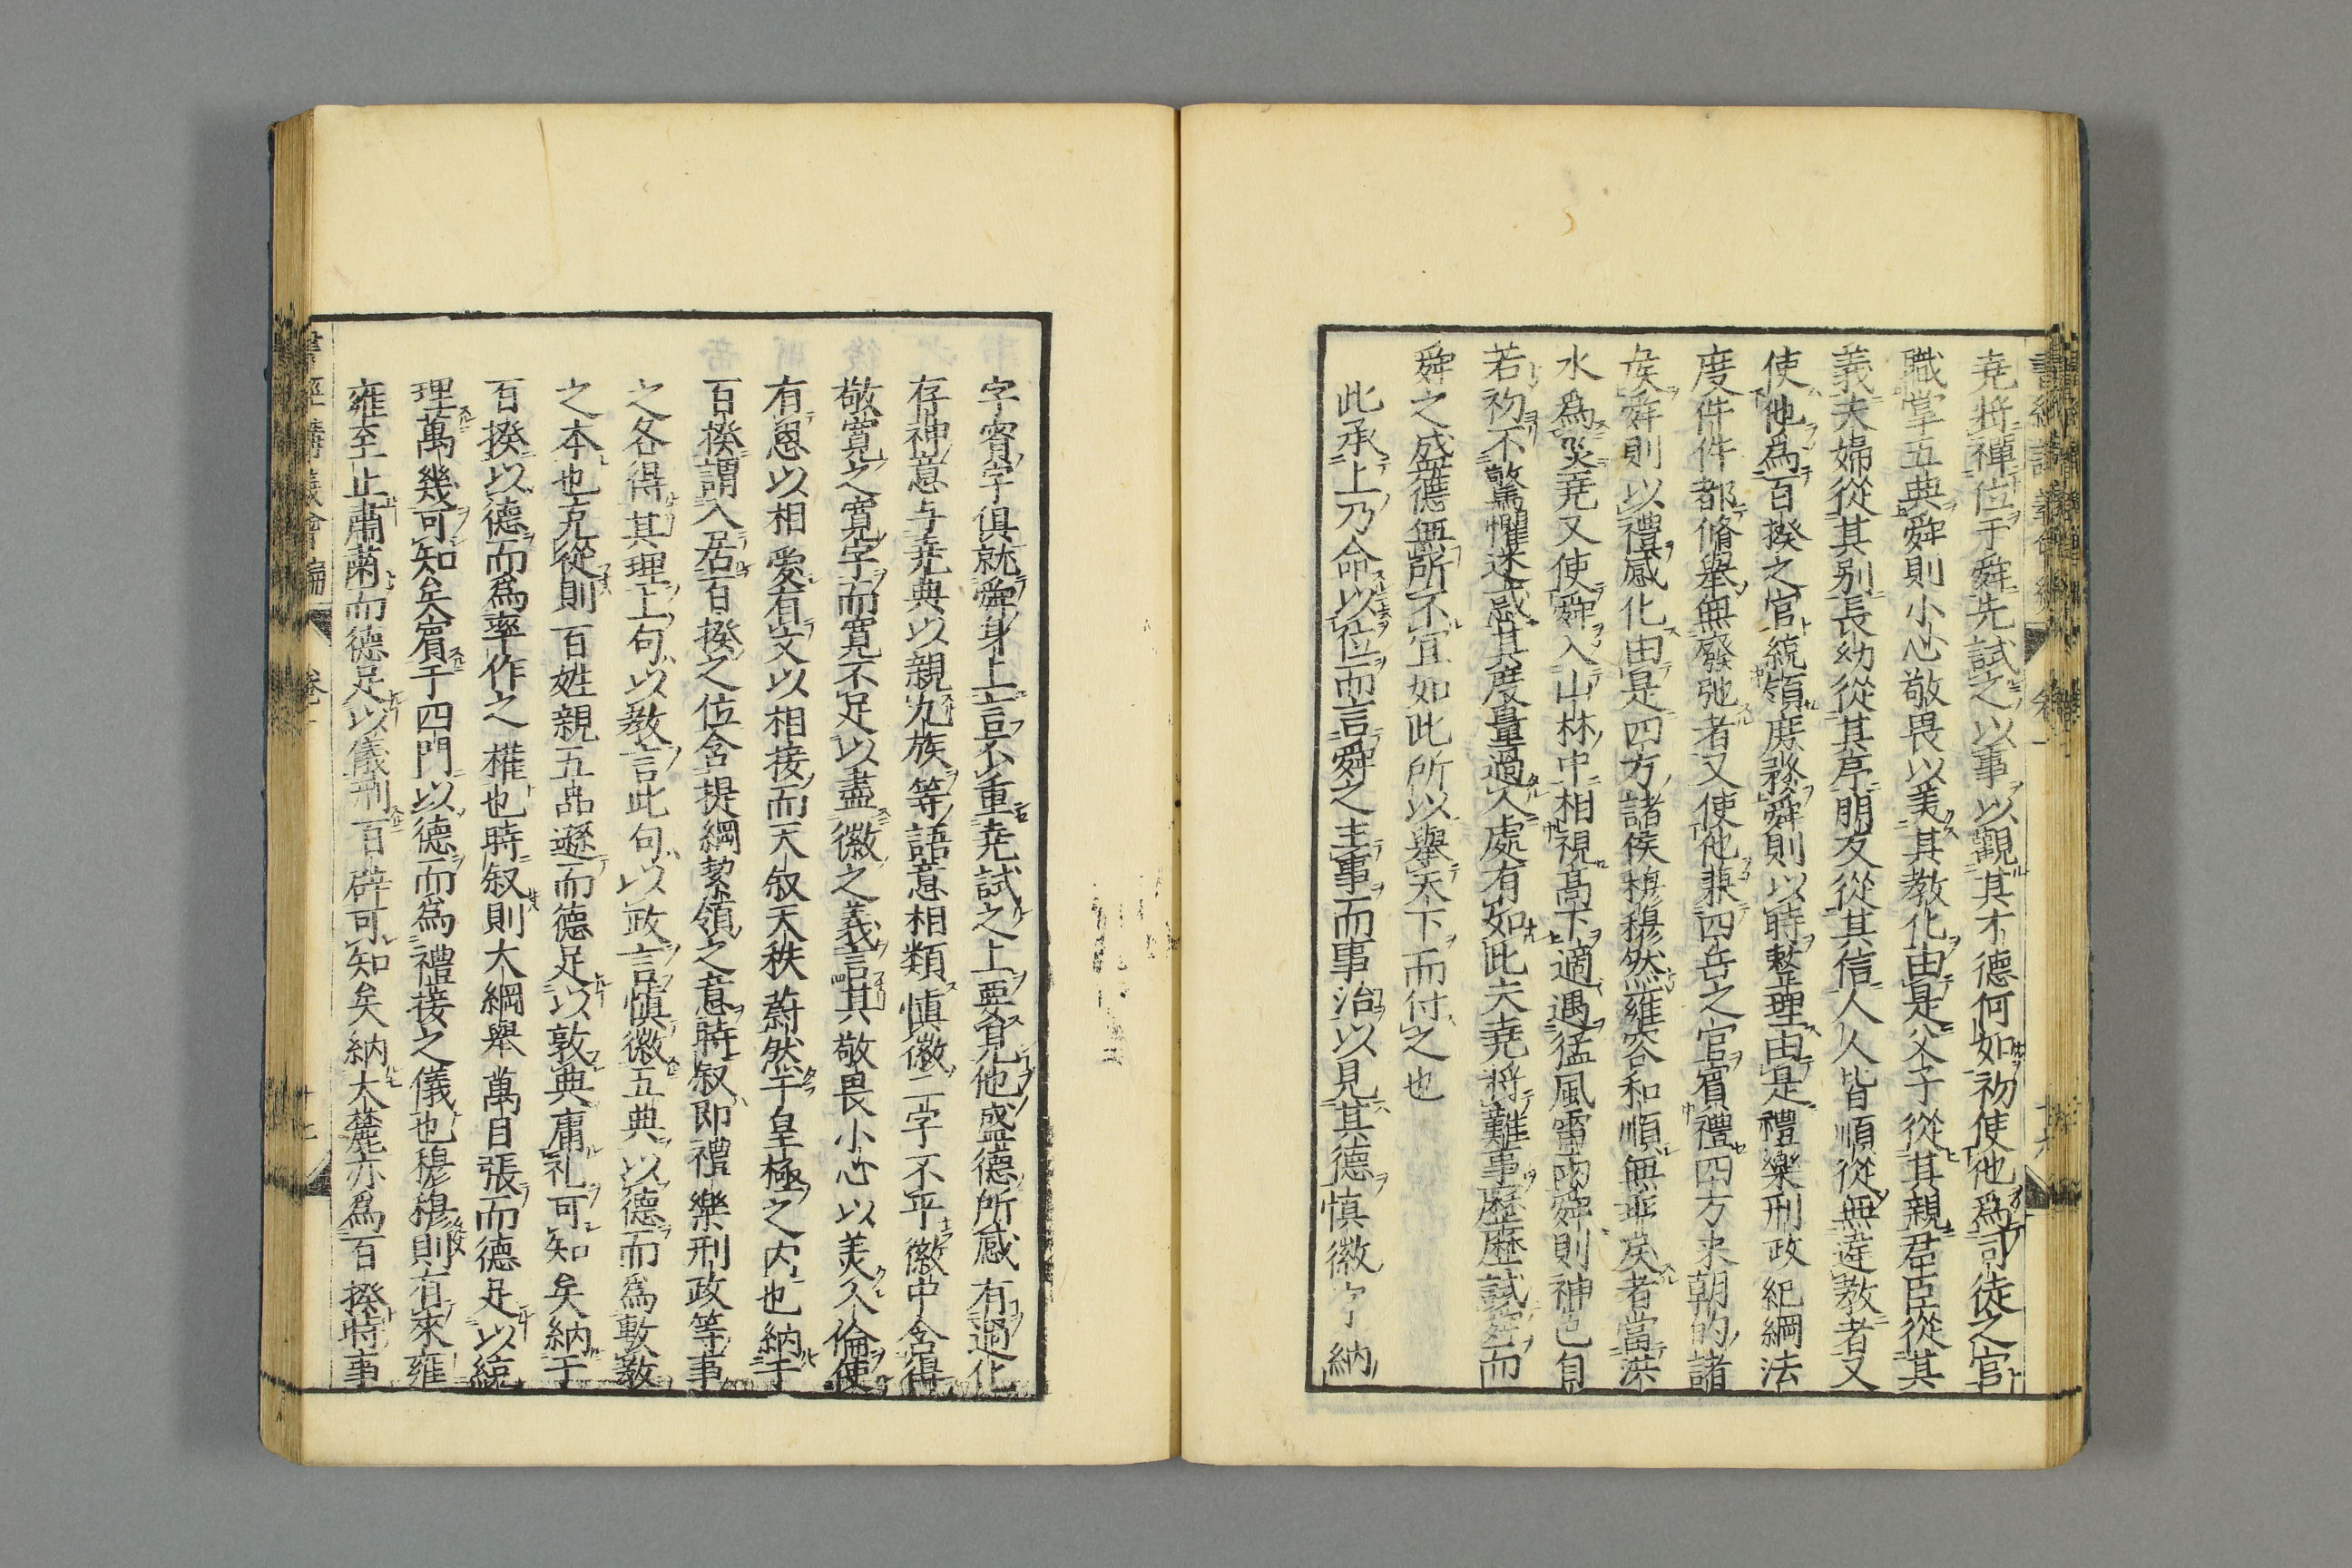 堯將禪位于舜先試之以事以觀其才德何如初使他爲司徒之官
職掌五典舜則小心敬畏以美其教化由是父子從其親君臣從其
義夫婦從其別長幼從其序朋友從其信人人皆順從無違教者又
使他爲百揆之官統領庶務舜則以時整理由是禮樂刑政紀綱法
度件件都脩舉無廢弛者又使他兼四岳之官賓禮四方来朝的諸
侯舜則以禮感化由是四方諸侯穆穆然雍容和順無乖戾者當洪
水爲災堯又使舜入山林中相視高下適遇猛風雷雨舜則神色自
若初不驚懼迷惑其度量過人處有如此夫堯將難事歷歷試舜而
舜之盛德無所不宜如此所以舉天下而付之也
此承上乃命以位而言舜之主事而事治以見其德慎徽字納
字賓字俱就舜身上言不重堯試之上要見他盛德所感有過化
存神意与堯典以親九族等語意相類慎徽二字不平徽中含得
敬寛之寛字而寛不足以盡徽之義言其敬畏小心以美人倫使
有恩以相愛有文以相接而天叙天秩蔚然于皇極之内也納于
百揆謂入居百揆之位含提綱絜領之意時叙即禮樂刑政等事
之各得其理上句以教言此句以政言慎徽五典以德而爲敷教
之本也克從則百姓親五品遜而德足以敦典庸礼可知矣納于
百揆以德而爲率作之權也時叙則大綱舉萬目張而德足以綜
理萬幾可知矣賓于四門以德而爲禮接之儀也穆穆則有來雍
雍至止肅肅而德足以儀刑百辟可知矣納大麓亦爲百揆時事
書經講義會編 卷一 十七